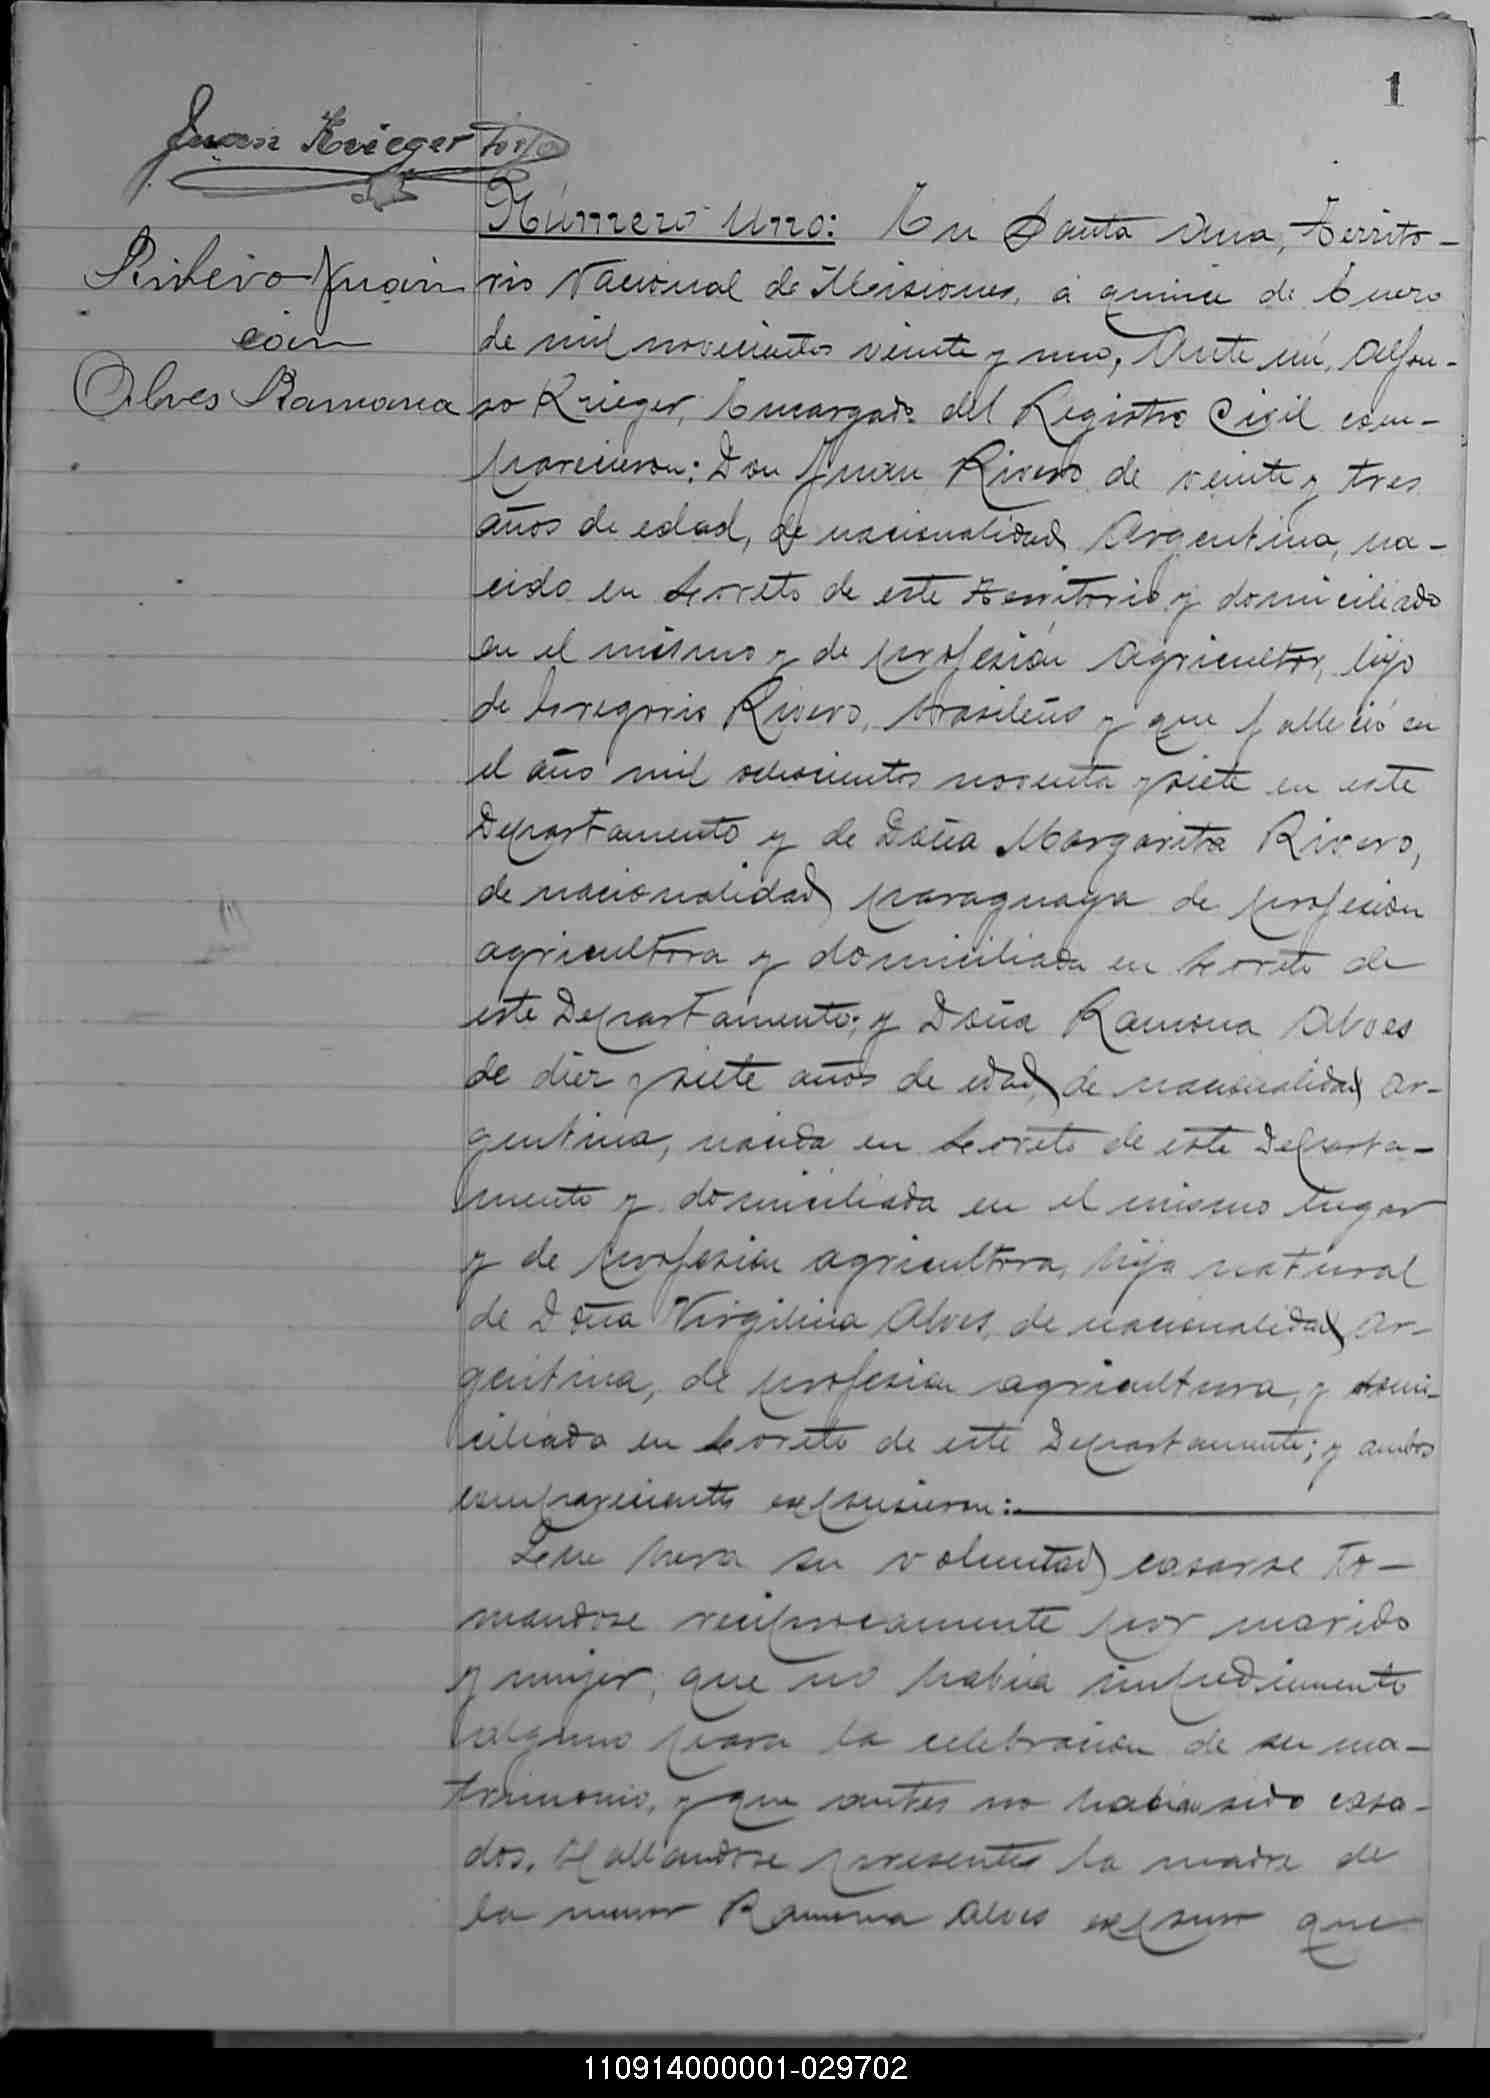 1
Juan Krieger
Número Uno: En Santa Ana, Territo-
Riveiro Juan
con
Alves Ramona
rio Nacional de Misiones, á quince de Enero
de mil novecientos veinte y uno, Ante mí, Alfon-
so Krieger, Encargado del Registro Civil com-
parecieron: Don Juan Rivero de veinte y tres
años de edad, de nacionalidad Argentina, na-
cido en Loreto de este Territorio y domiciliado
en el mismo y de profesión Agricultor, hijo
de Gregorio Rivero, brasileño y que falleció en
el año mil ochocientos noventa y siete en este
Departamento y de Doña Margarita Rivero,
de nacionalidad paraguaya de profesion
agricultora y domiciliada en Loreto de
este Departamento; y Doña Ramona Alves
de diez y siete años de edad, de nacionalidad Ar-
gentina, nacida en Loreto de este Departa-
mento y domiciliada en el mismo lugar
y de profesion agricultora, hija natural
de Doña Virgilina Alves, de nacionalidad Ar-
gentina, de profesion agricultura, y domi-
ciliada en Loreto de este Departamento; y ambos
comparecientes expusieron:
Que hera su voluntad casarse to-
mandose reciprocamente por marido
y mujer, que no habia impedimento
alguno para la celebracion de su ma-
trimonio, y que antes no habian sido casa-
dos. Hallandose presente la madre de
la menor Ramona Alves expuso que
110914000001-029702